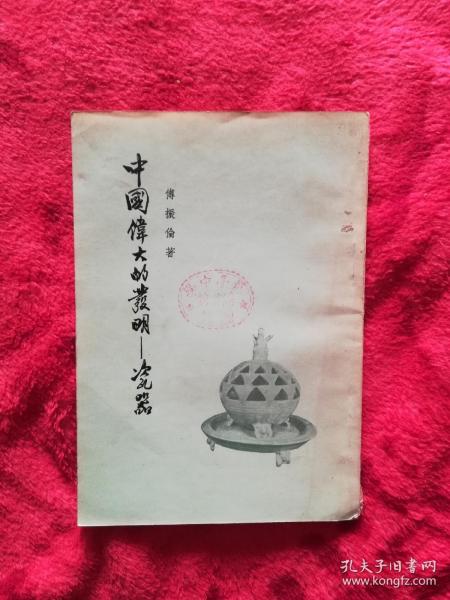 中國偉大的發明—瓷器
傅振倫著
孔夫子旧书网
www.kongfz.com